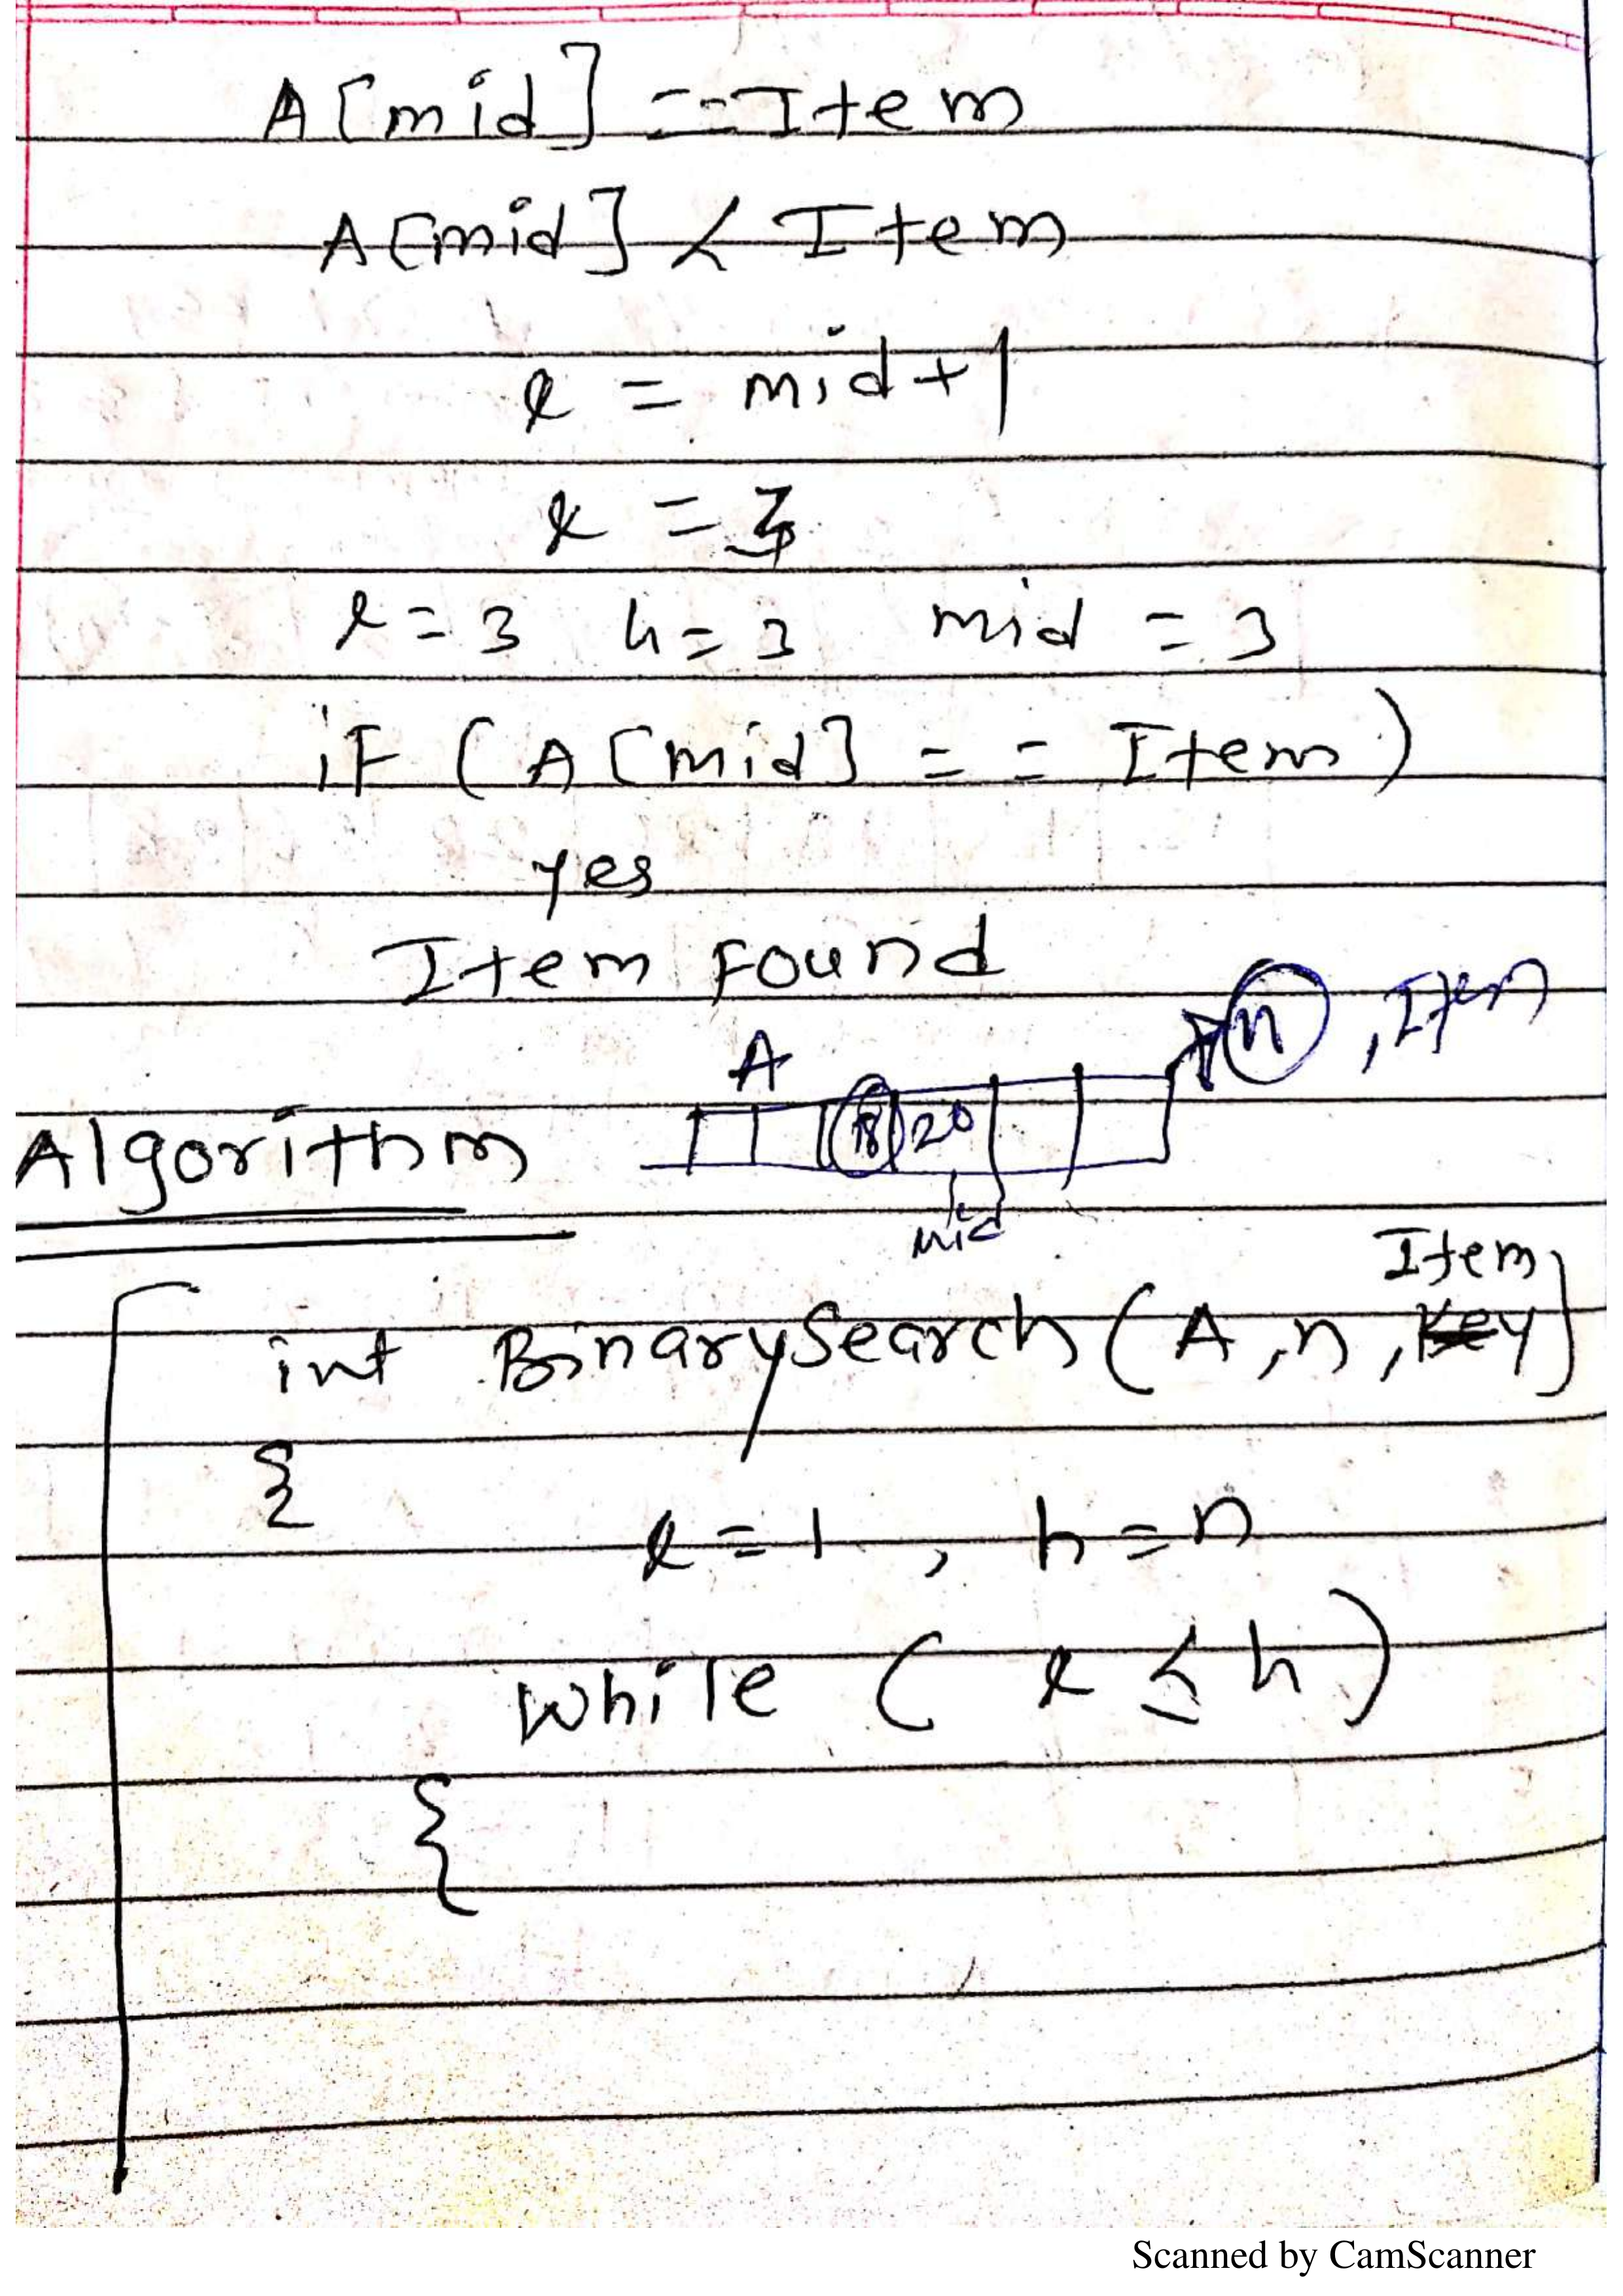 A[mid] == Item
A[mid] < Item
l = mid+1
l = 3
l = 3 h = 3 mid = 3
if (A[mid] == Item)
yes
Item Found
n, Item
A
18 20
mid
Algorithm
Item
int BinarySearch(A, n, Key)
{
l = 1, h = n
while (l ≤ h)
{
Scanned by CamScanner